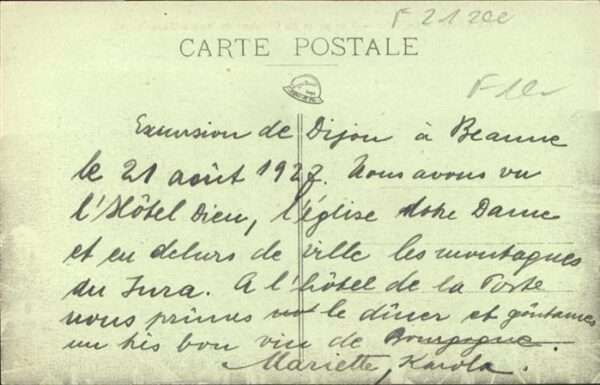 F 21200
CARTE POSTALE
F 10.-
Excursion de Dijon à Beaune
le 21 août 1927. Nous avons vu
l'Hôtel Dieu, l'église Notre Dame
et en dehors de ville les montagnes
du Jura. A l'hôtel de la Poste
nous prîmes le dîner et goûtames
un très bon vin de Bourgogne.
Mariette, Karola.